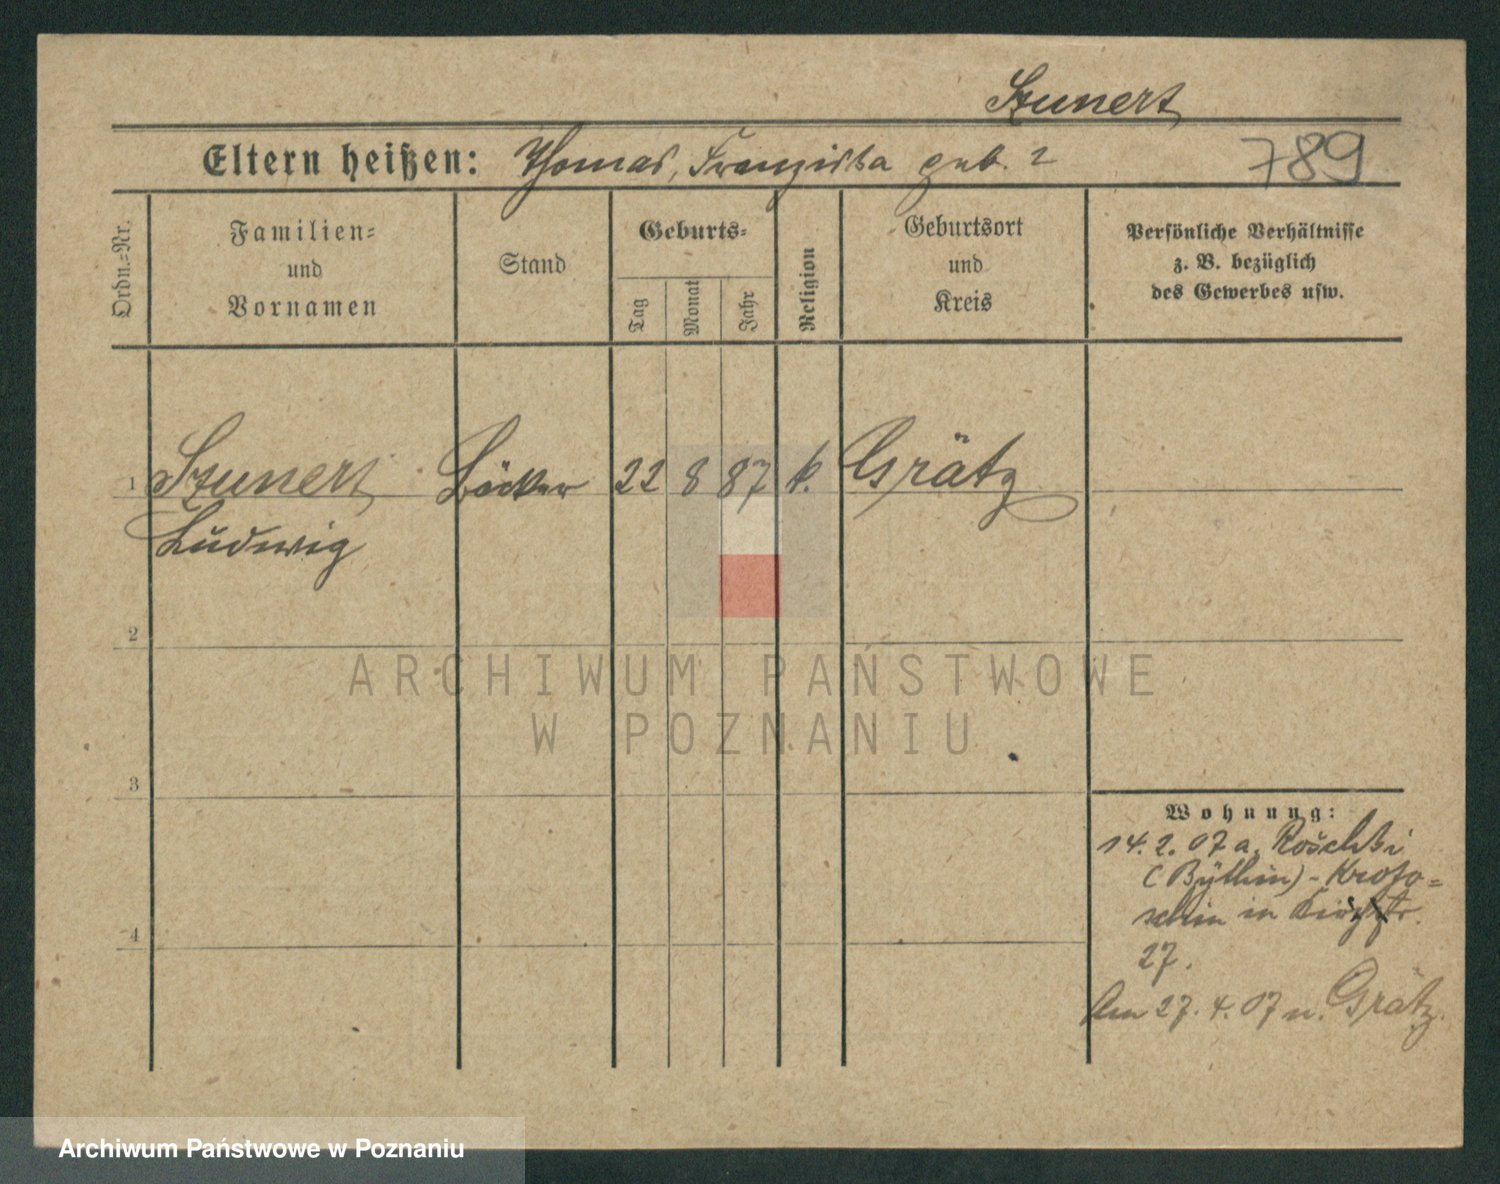 Szunert
Eltern heißen: Thomas, Franziska geb. ?
789
Ordn.=Nr.
Familien=
und
Vornamen
Stand
Geburts=
Tag
Monat
Jahr
Religion
Geburtsort
und
Kreis
Persönliche Verhältnisse
z. B. bezüglich
des Gewerbes usw.
1 Szunert Bäcker 22 8 87 k. Grätz
Ludwig
2
3
4
ARCHIWUM PAŃSTWOWE
W POZNANIU
Wohnung:
14. 2. 07 a.
(Bythin) - Kroto=
schin in
27.
Am 27. 4. 07 n. Grätz.
Archiwum Państwowe w Poznaniu